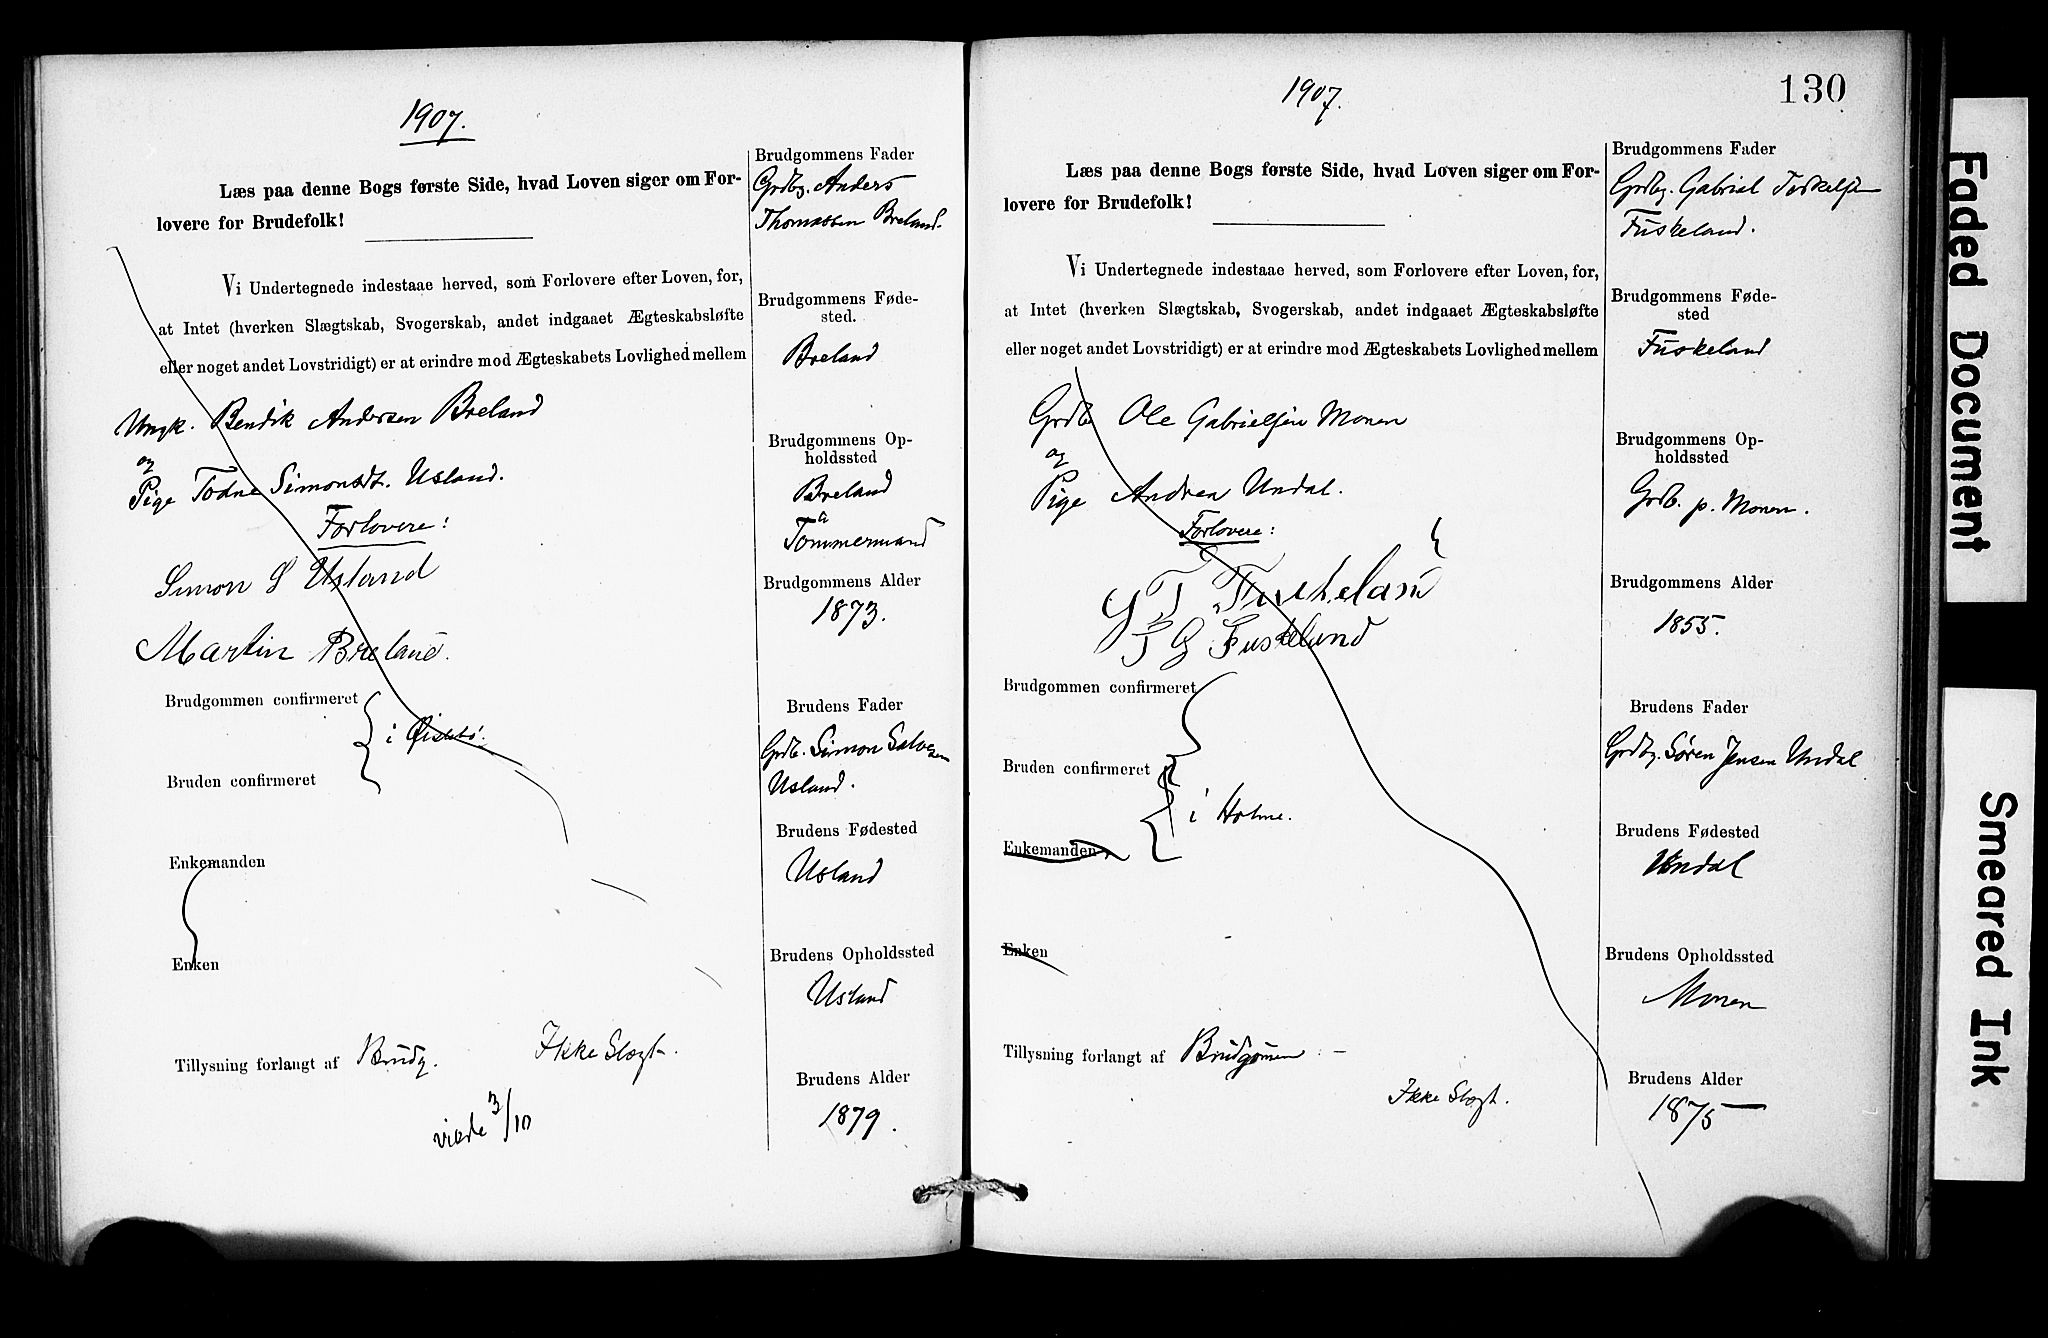 1907.
Læs paa denne Bogs første Side, hvad Loven siger om For-
lovere for Brudefolk!
Vi Undertegnede indestaae herved, som Forlovere efter Loven, for,
at Intet (hverken Slægtskab, Svogerskab, andet indgaaet Ægteskabsløfte
eller noget andet Lovstridigt) er at erindre mod Ægteskabets Lovlighed mellem
Ungk. Bendik Andersen Breland
og
Pige Todne Simonsdt. Usland.
Forlovere:
Simon S Usland
Martin Breland.
Brudgommen confirmeret
i Øislebø.
Bruden confirmeret
Enkemanden
Enken
Tillysning forlangt af Brudg. Ikke Slægt.
viede 3/10
Brudgommens Fader
Grdbg. Anders
Thomassen Breland.
Brudgommens Føde-
sted.
Breland
Brudgommens Op-
holdssted
Breland
Tømmermand
Brudgommens Alder
1873.
Brudens Fader
Grdb. Simon Salvesen
Usland.
Brudens Fødested
Usland
Brudens Opholdssted
Usland
Brudens Alder
1879.
1907.
130
Læs paa denne Bogs første Side, hvad Loven siger om For-
lovere for Brudefolk!
Vi Undertegnede indestaae herved, som Forlovere efter Loven, for,
at Intet (hverken Slægtskab, Svogerskab, andet indgaaet Ægteskabsløfte
eller noget andet Lovstridigt) er at erindre mod Ægteskabets Lovlighed mellem
Grdb. Ole Gabrielsen Monen
og
Pige Andrea Undal.
Forlovere:
G T Fuskeland
T G Fuskeland
Brudgommen confirmeret
Bruden confirmeret
i Holme.
Enkemanden
Enken
Tillysning forlangt af Brudgommen. —
Ikke Slægt.
Brudgommens Fader
Grdbg. Gabriel Torkelsen
Fuskeland.
Brudgommens Føde-
sted
Fuskeland
Brudgommens Op-
holdssted
Grdb. p. Monen.
Brudgommens Alder
1855.
Brudens Fader
Grdbg. Søren Jensen Undal
Brudens Fødested
Undal
Brudens Opholdssted
Monen
Brudens Alder
1875
Faded Document
Smeared Ink